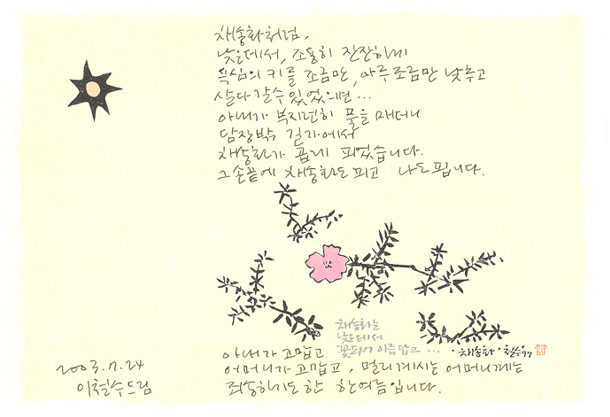 채송화처럼,
낮은데서, 조용히 잔잔하게
욕심의 키를 조금만, 아주조금만 낮추고
살다 갈수있었으면...
아내가 부지런히 풀을 매더니
담장밖 길가에서
채송화가 곱게 피었습니다.
그손끝에 채송화도 피고 나도 핍니다.
채송화는
낮은데서
꽃되어 아름답고 ... ·채송화·철수 97
아내가 고맙고
어머니가 고맙고, 멀리계시는 어머니께는
죄송하기도한 한여름입니다.
2003.7.24
이철수드림